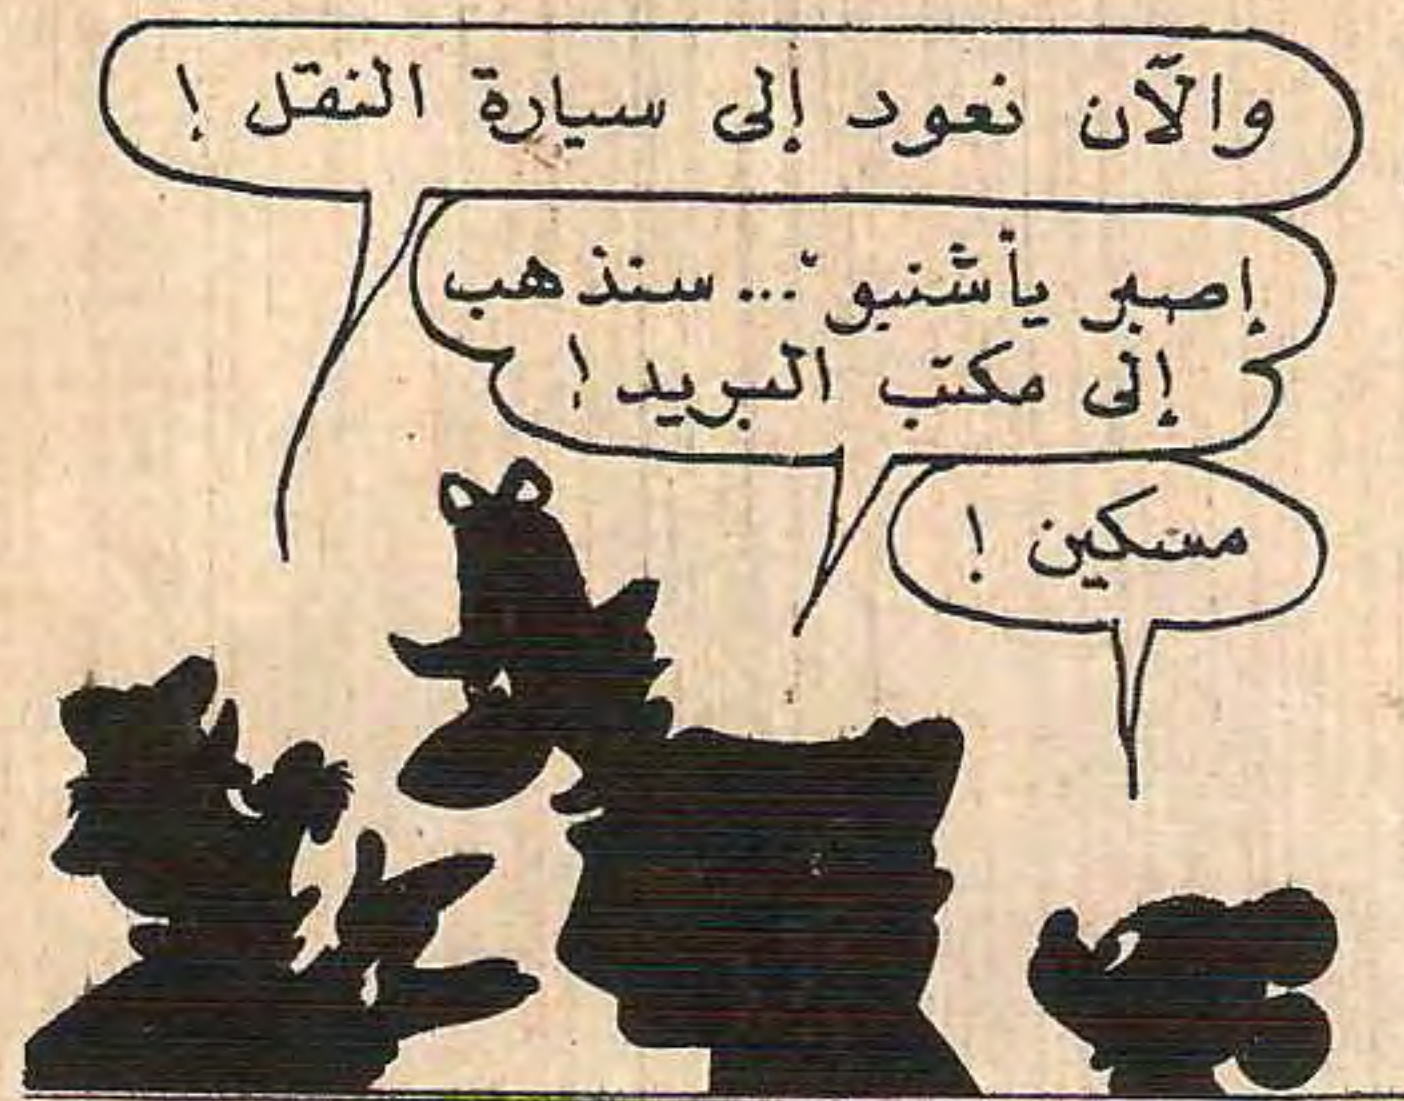 والآن نعود إلى سيارة النقل !
إصبر يا "شنبو" ... سنذهب
إلى مكتب البريد !
مسكين !